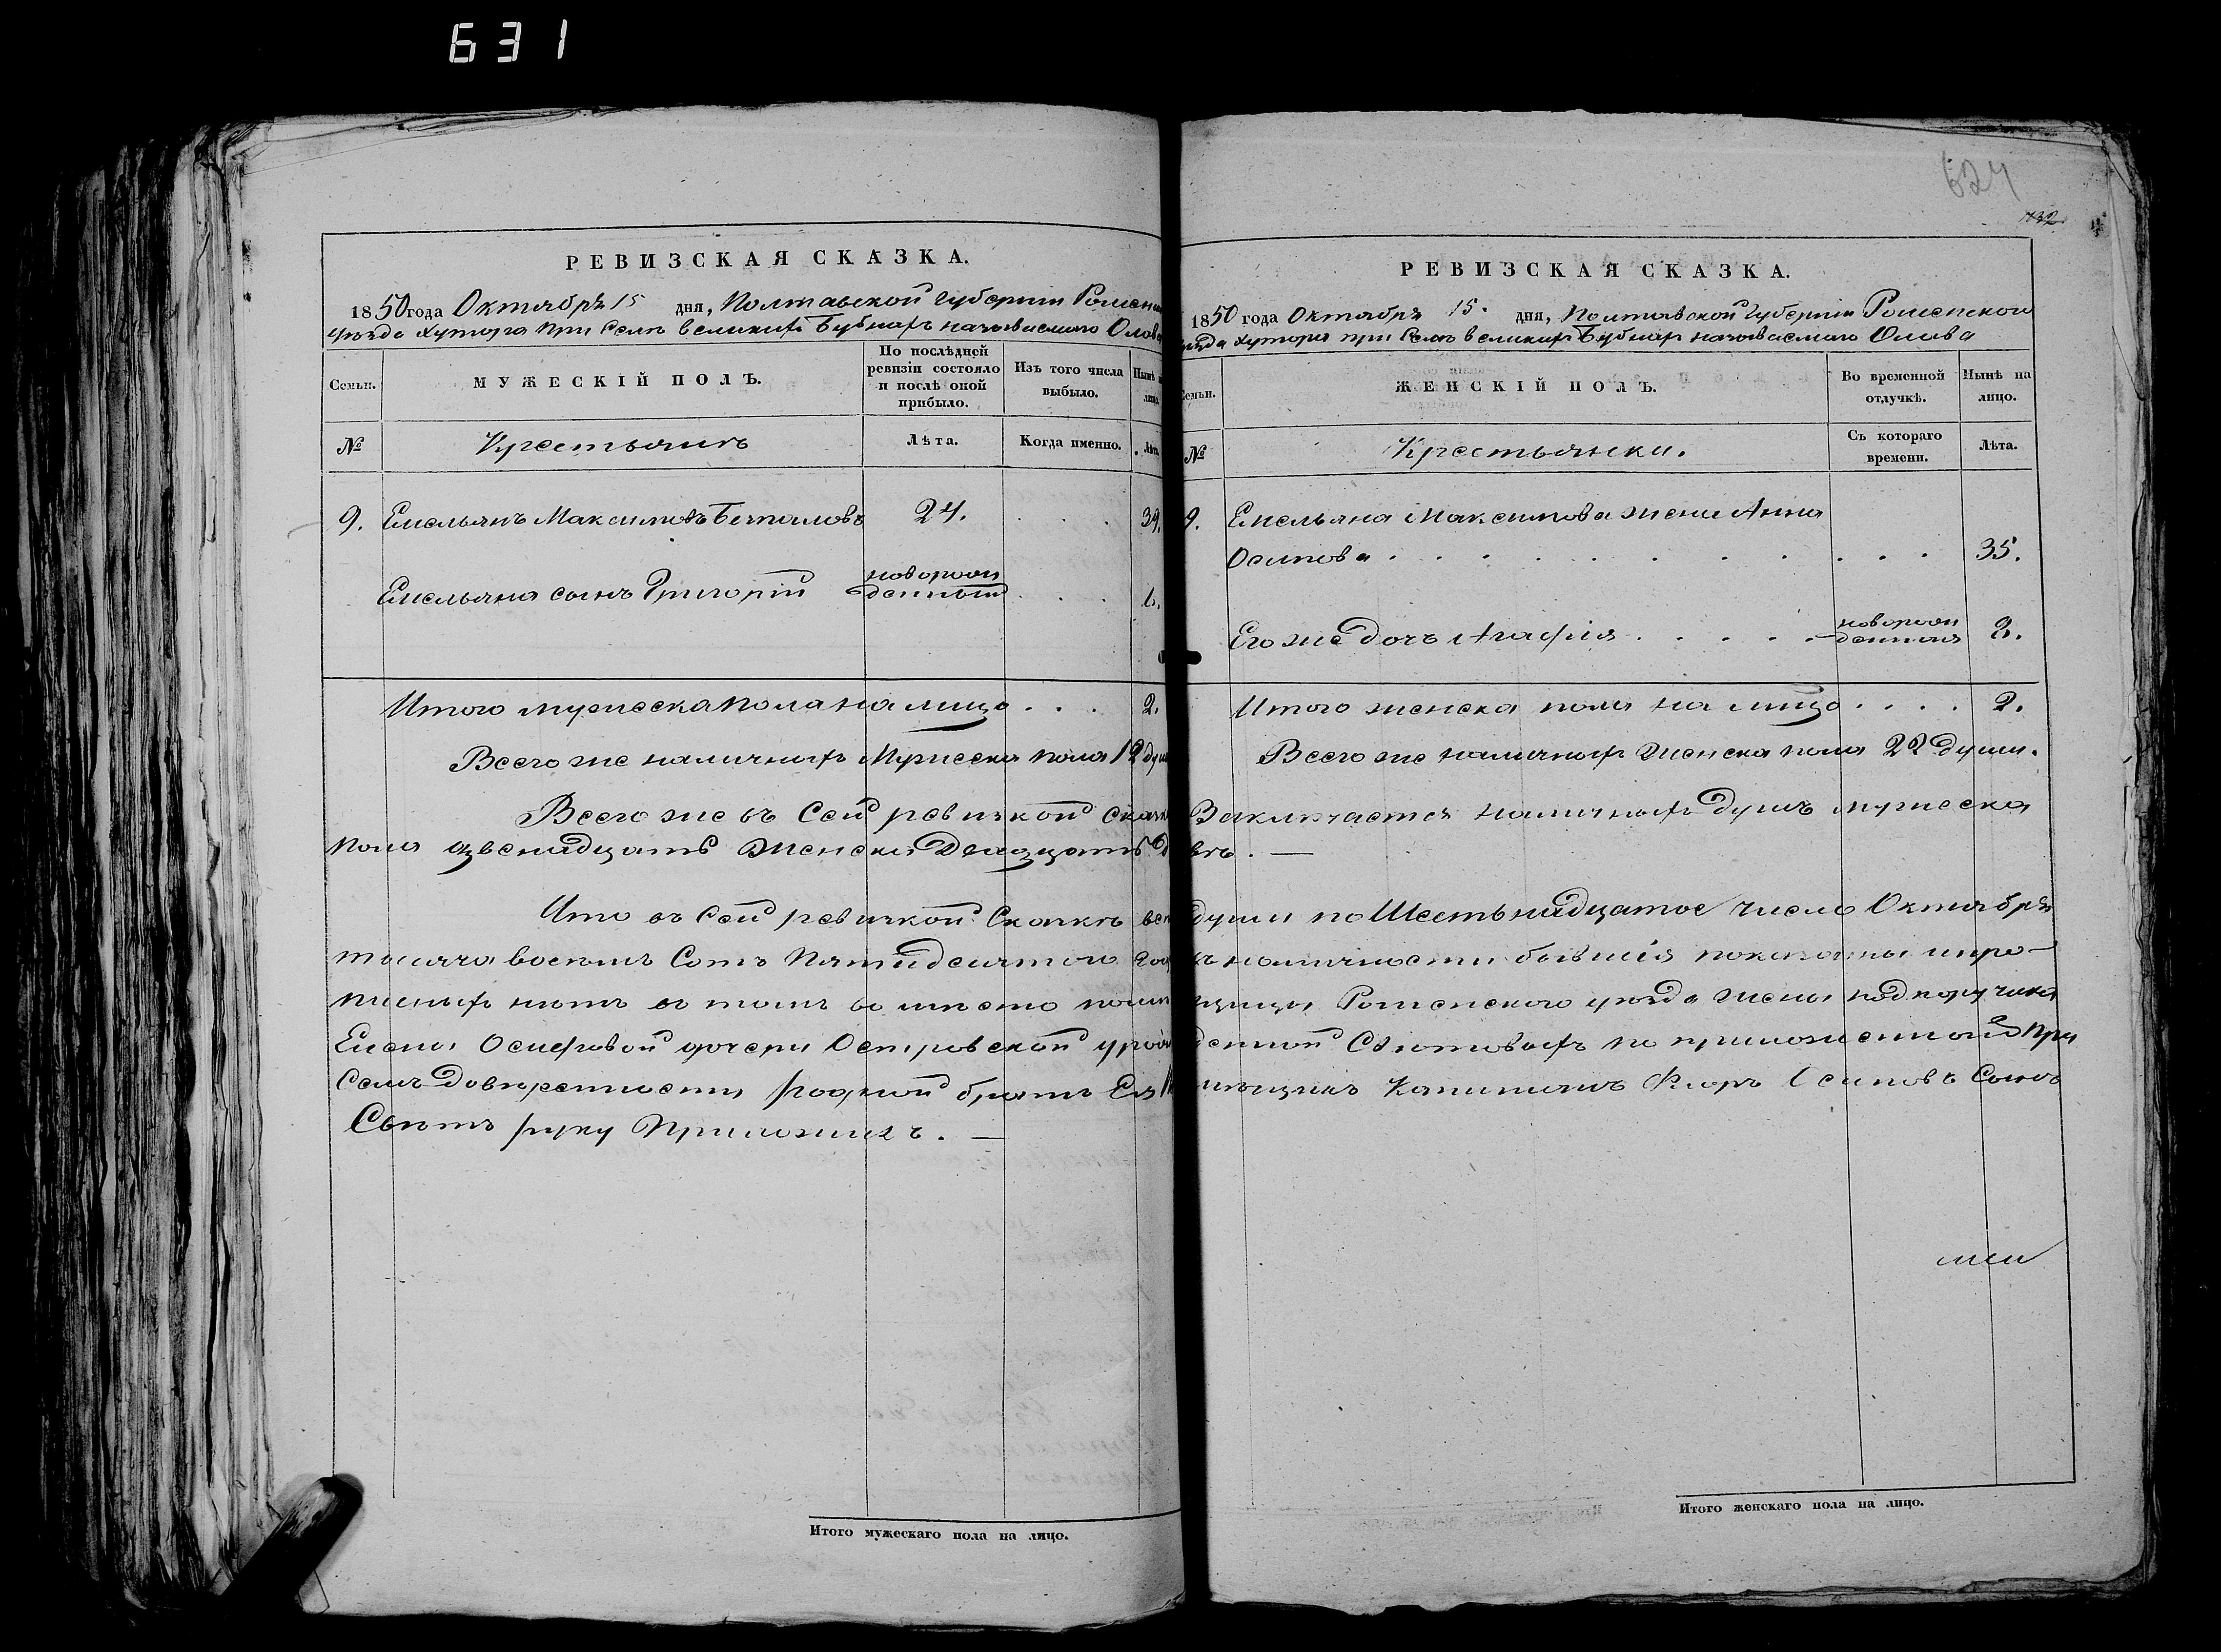 631
624
132
РЕВИЗСКАЯ СКАЗКА.
1850 года Октября 15 дня, Полтавской Губернии Роменс
уѣзда Хутора при Селѣ великихъ Бубнахъ называемаго Олава
Семьи.
МУЖЕСКІЙ ПОЛЪ.
По послѣдней ревизіи состояло и послѣ оной прибыло.
Изъ того числа выбыло.
Нынѣ на лицо.
№
Крестьянъ
Лѣта.
Когда именно.
Лѣта.
9. Емельянъ Максимовъ Безпаловъ 24. . . . 39.
Емельяна сынъ Григорій новорож денный . . . 1.
Итого мужеска пола на лицо . . . 2.
Всего же наличныхъ Мужеска пола 12 душ
РЕВИЗСКАЯ СКАЗКА.
1850 года Октября 15. дня, Полтавской Губерніи Роменского
уѣзда Хутора при Селѣ великихъ Бубнахъ называемаго Олава
Семьи.
ЖЕНСКІЙ ПОЛЪ.
Во временной отлучкѣ.
Нынѣ на лицо.
№
Крестьянки.
Съ котораго времени.
Лѣта.
9. Емельяна Максимова жена Анна
Осипова . . . . . . . . . . . 35.
Его же дочь Агафія . . . . . новорож денная 2.
Итого женска пола на лицо . . . . 2.
Всего же наличныхъ Женска пола 22 души.
Всего же въ Сей ревизкой сказкѣ Заключается наличныхъ душъ мужеска
пола двенадцать Женска Двадцать двѣ. —
Что въ Сей ревизкой Сказкѣ всѣ души по Шестьнадцатое число Октября
тысяча восемь Сотъ Пятидесятого года въ наличности бывшія показаны и про-
писныхъ нѣтъ въ томъ во мѣсто помѣщицы Роменского уѣзда жены подпоручика
Елены Осиповой дочери Островской урожденной Свѣтовыхъ по приложенной При
Семъ Довѣренности родной братъ Ея помѣщикъ Капитанъ Флоръ Осиповъ Сынъ
Свѣтъ руку Приложилъ. —
Итого мужескаго пола на лицо.
Итого женскаго пола на лицо.